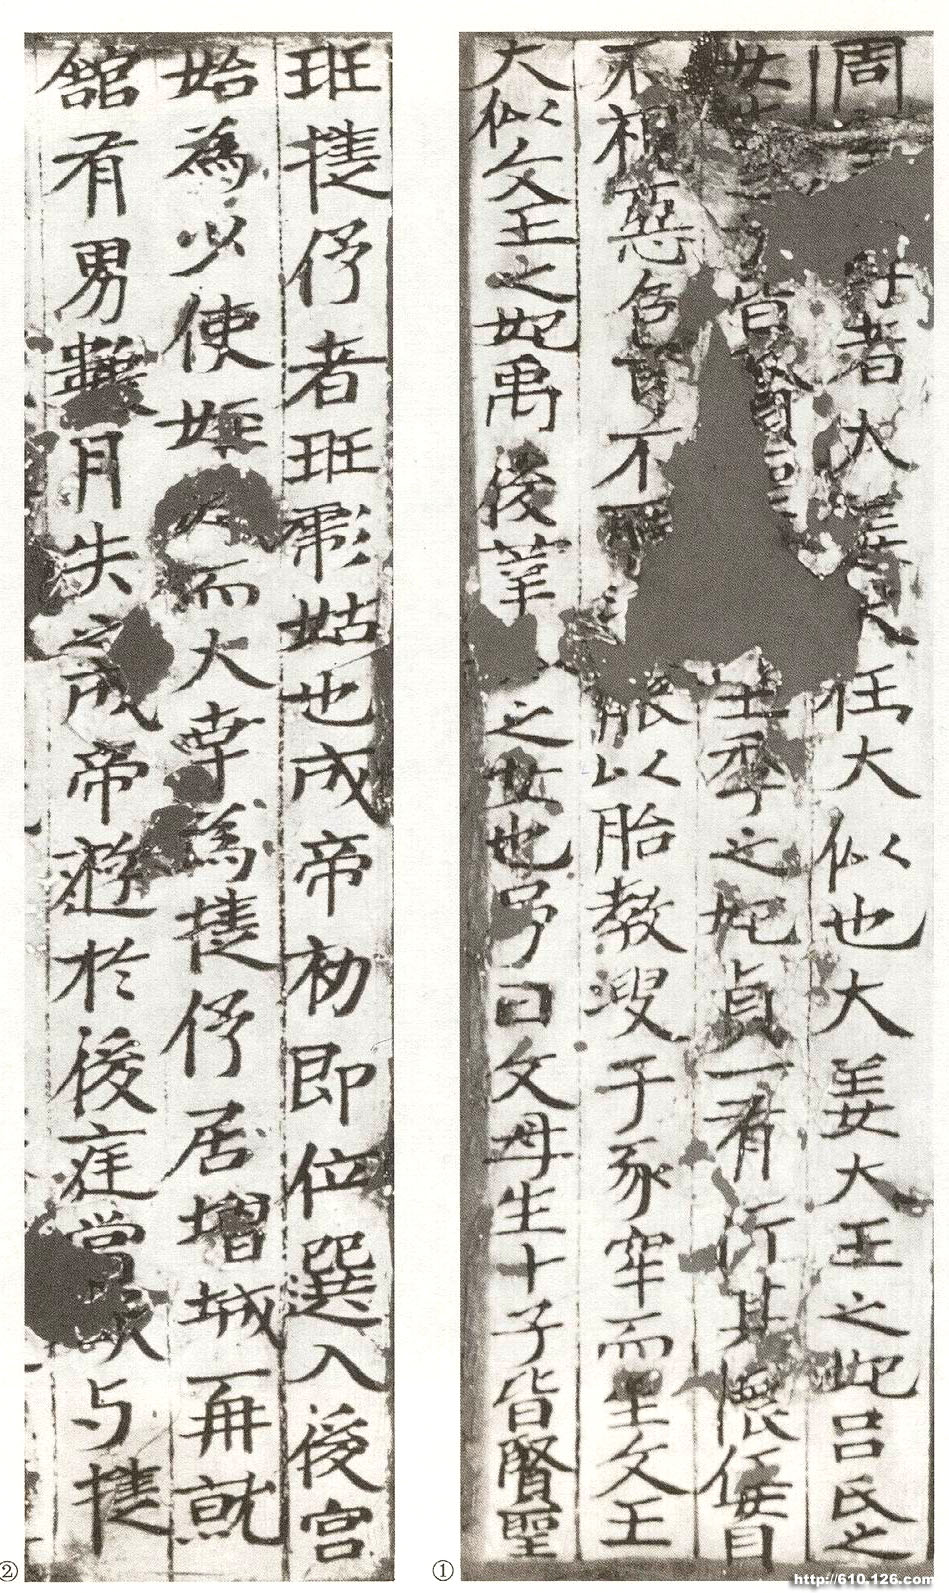 周母者大姜大任大似也大姜大王之妃吕氏之
女皆賢王季之妃貞一有行其懷任目
不視惡色耳不以胎教溲于豕牢而生文王
大似文王之妃禹後莘之女也号曰文母生十子皆賢聖
①
班婕伃者班彪姑也成帝初即位選入後宮
始為少使而大幸為婕伃居增城再就
館有男數月失之成帝遊於後庭嘗欲与婕
②
http://610.126.com